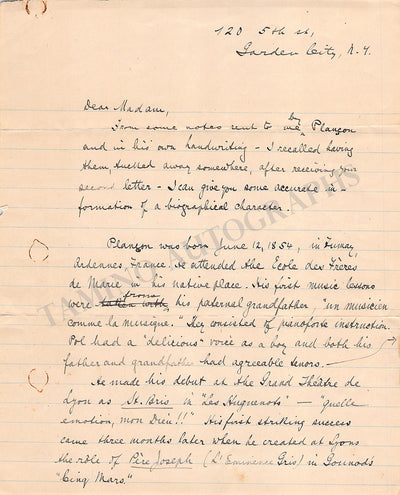 120 5th st,
Garden City, N.Y.
Dear Madam,
From some notes sent to me by Plançon
and in his own handwriting - I recalled having
them, tucked away somewhere, after receiving your
second letter - I can give you some accurate in-
formation of a biographical character.
Plançon was born June 12, 1854, in Fumay,
Ardennes, France. He attended the Ecole des Frères
de Marie in his native place. His first music lessons
were taken with from his paternal grandfather, "un musicien
comme la musique." They consisted of pianoforte instruction.
Pol had a "delicious" voice as a boy and both his
father and grandfather had agreeable tenors. -
He made his debut at the Grand Théâtre de
Lyon as St. Bris in "Les Huguenots" - "quelle
emotion, mon Dieu!!" His first striking success
came three months later when he created at Lyons
the rôle of Père Joseph (L'Eminence Gris) in Gounod's
"Cinq Mars."
TAMINO AUTOGRAPHS